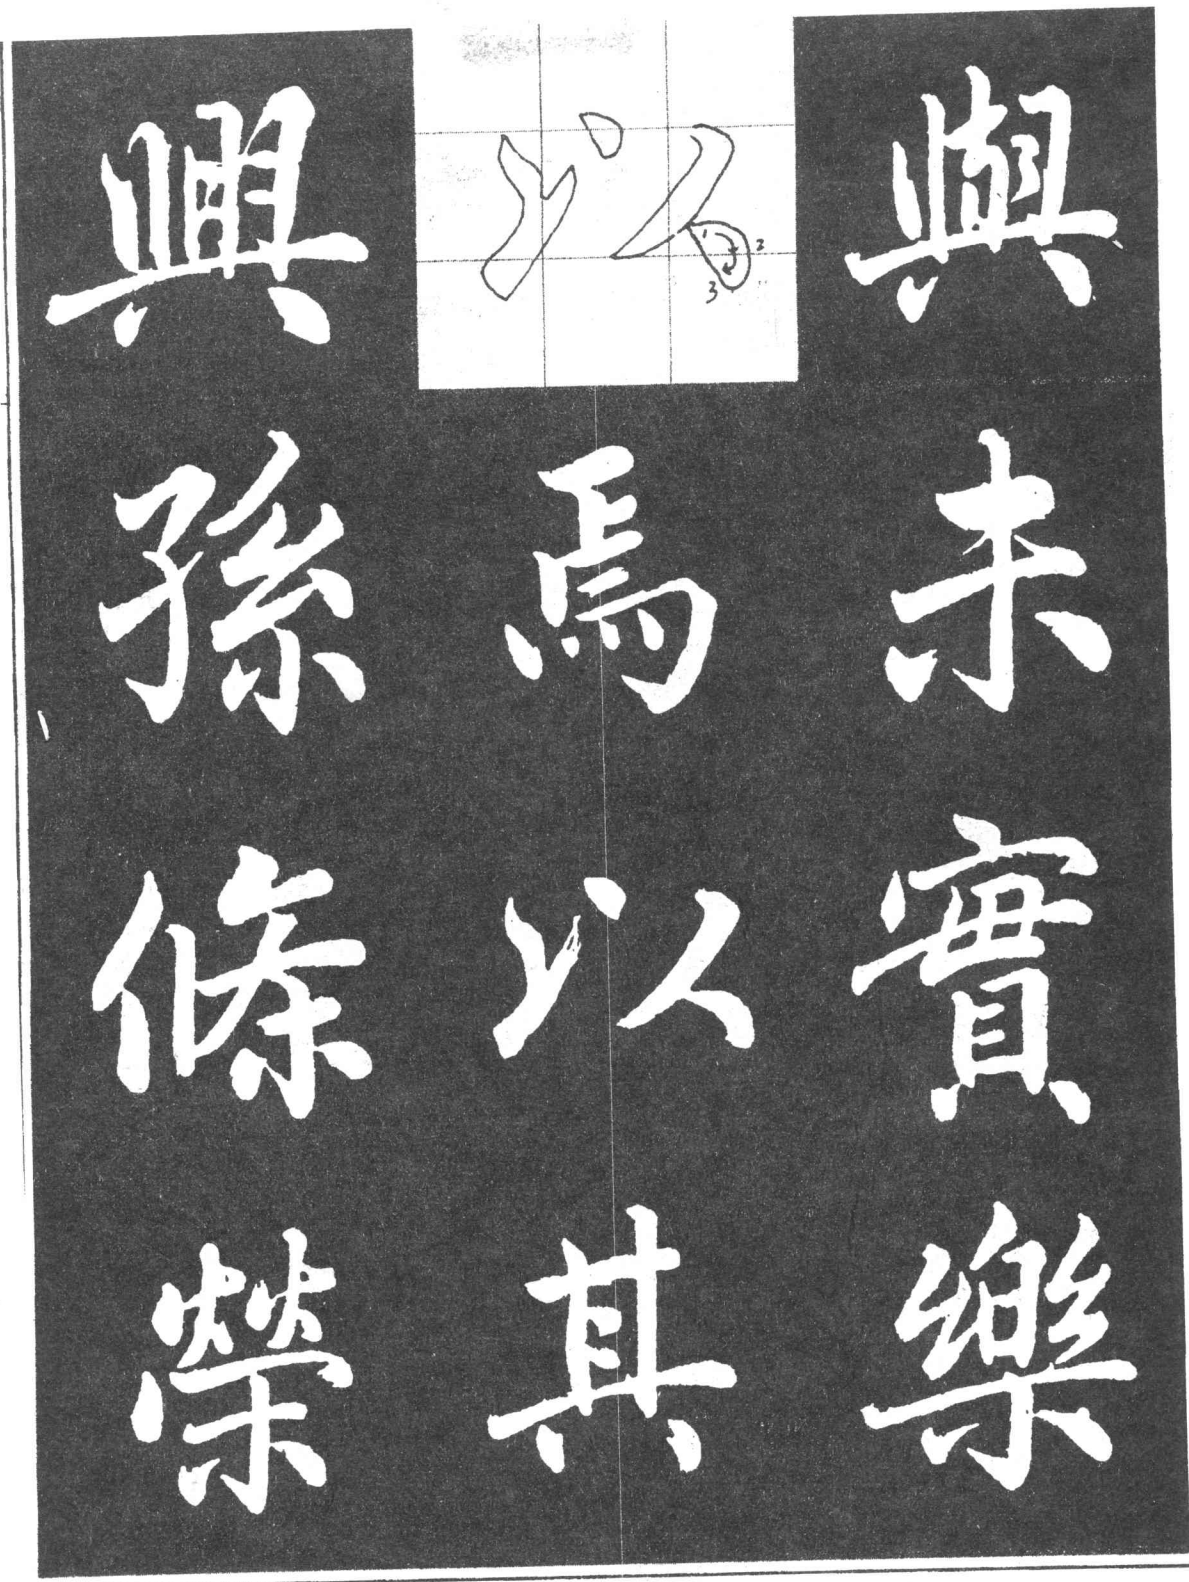 與未實樂
以
1
2
3
焉以其
興孫條榮